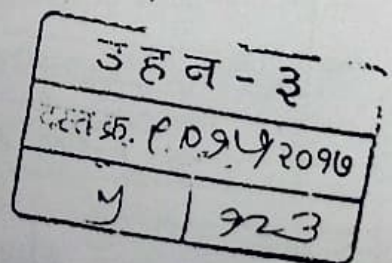 उहन - ३
दस्त क्र. ९०१५२०१७
५ १२३